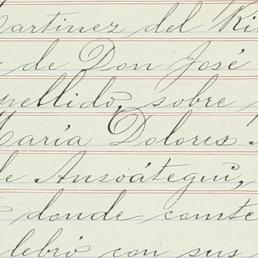 Martinez del Ri
de Don José
pellido, sobre
María Dolores
de Ansoátegui,
donde conste
lebró con sus